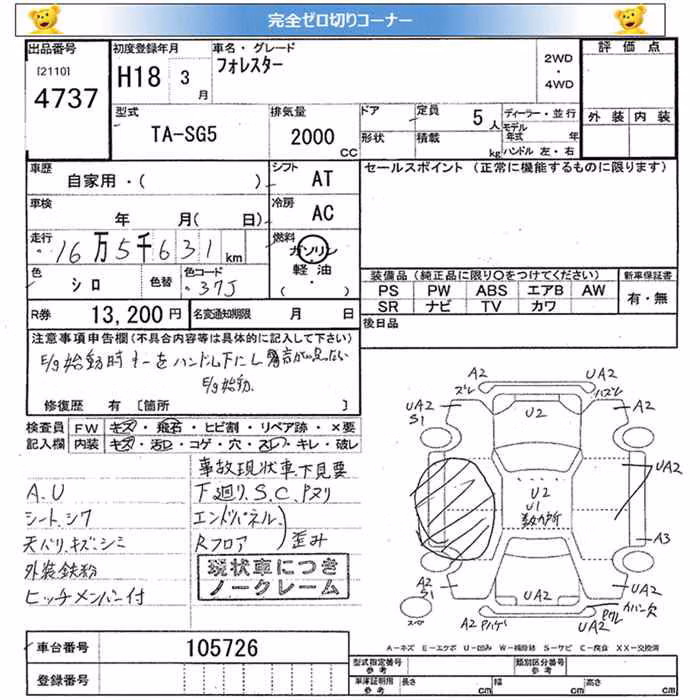 完全ゼロ切りコーナー
出品番号
[2110]
4737
初度登録年月
H18 3 月
車名・グレード
フォレスター
2WD
・
4WD
評価点
外装 内装
型式
TA-SG5
排気量
2000 CC
ドア
形状
定員 5 人
積載 kg
ディーラー・並行
モデル年式 年
ハンドル 左・右
車歴
自家用・( )
シフト
AT
セールスポイント (正常に機能するものに限ります)
車検
年 月( 日)
冷房
AC
走行
16万5千631 km
燃料
ガソリン
軽油
( ・ )
色
シロ
色替
色コード
37J
装備品(純正品に限り〇をつけてください)
PS PW ABS エアB AW
SR ナビ TV カワ
新車保証書
有・無
R券 13,200円
名変通知期限 月 日
後日品
注意事項申告欄(不具合内容等は具体的に記入して下さい)
E/g始動時キーをハンドル下にし
E/g始動
修復歴 有 [箇所 ]
検査員
記入欄
FW キズ・飛石・ヒビ割・リペア跡・×要
内装 キズ・汚レ・コゲ・穴・スレ・キレ・破レ
事故現状車下見要
A.U
下廻り.S.C.Pヌリ
シート.シワ
エンドパネル
天バリ.キズ.シミ
Rフロア
歪み
外装鉄粉
現状車につき
ノークレーム
ヒッチメンバー付
A2
UA2
ズレ
ハズレ
UA2
S1
A2
U2
UA2
U2
U1
A3
A2
S1
UA2
UA2
スペア
A2
Pハゲ
UA2
UA2
Pワレ
カバー欠
A=キズ E=エクボ U=凹み W=補修跡 S=サビ C=腐食 XX=交換済
車台番号
105726
登録番号
型式指定番号
参考
類別区分番号
参考
車庫証明用
参考
長さ cm
幅 cm
高さ cm